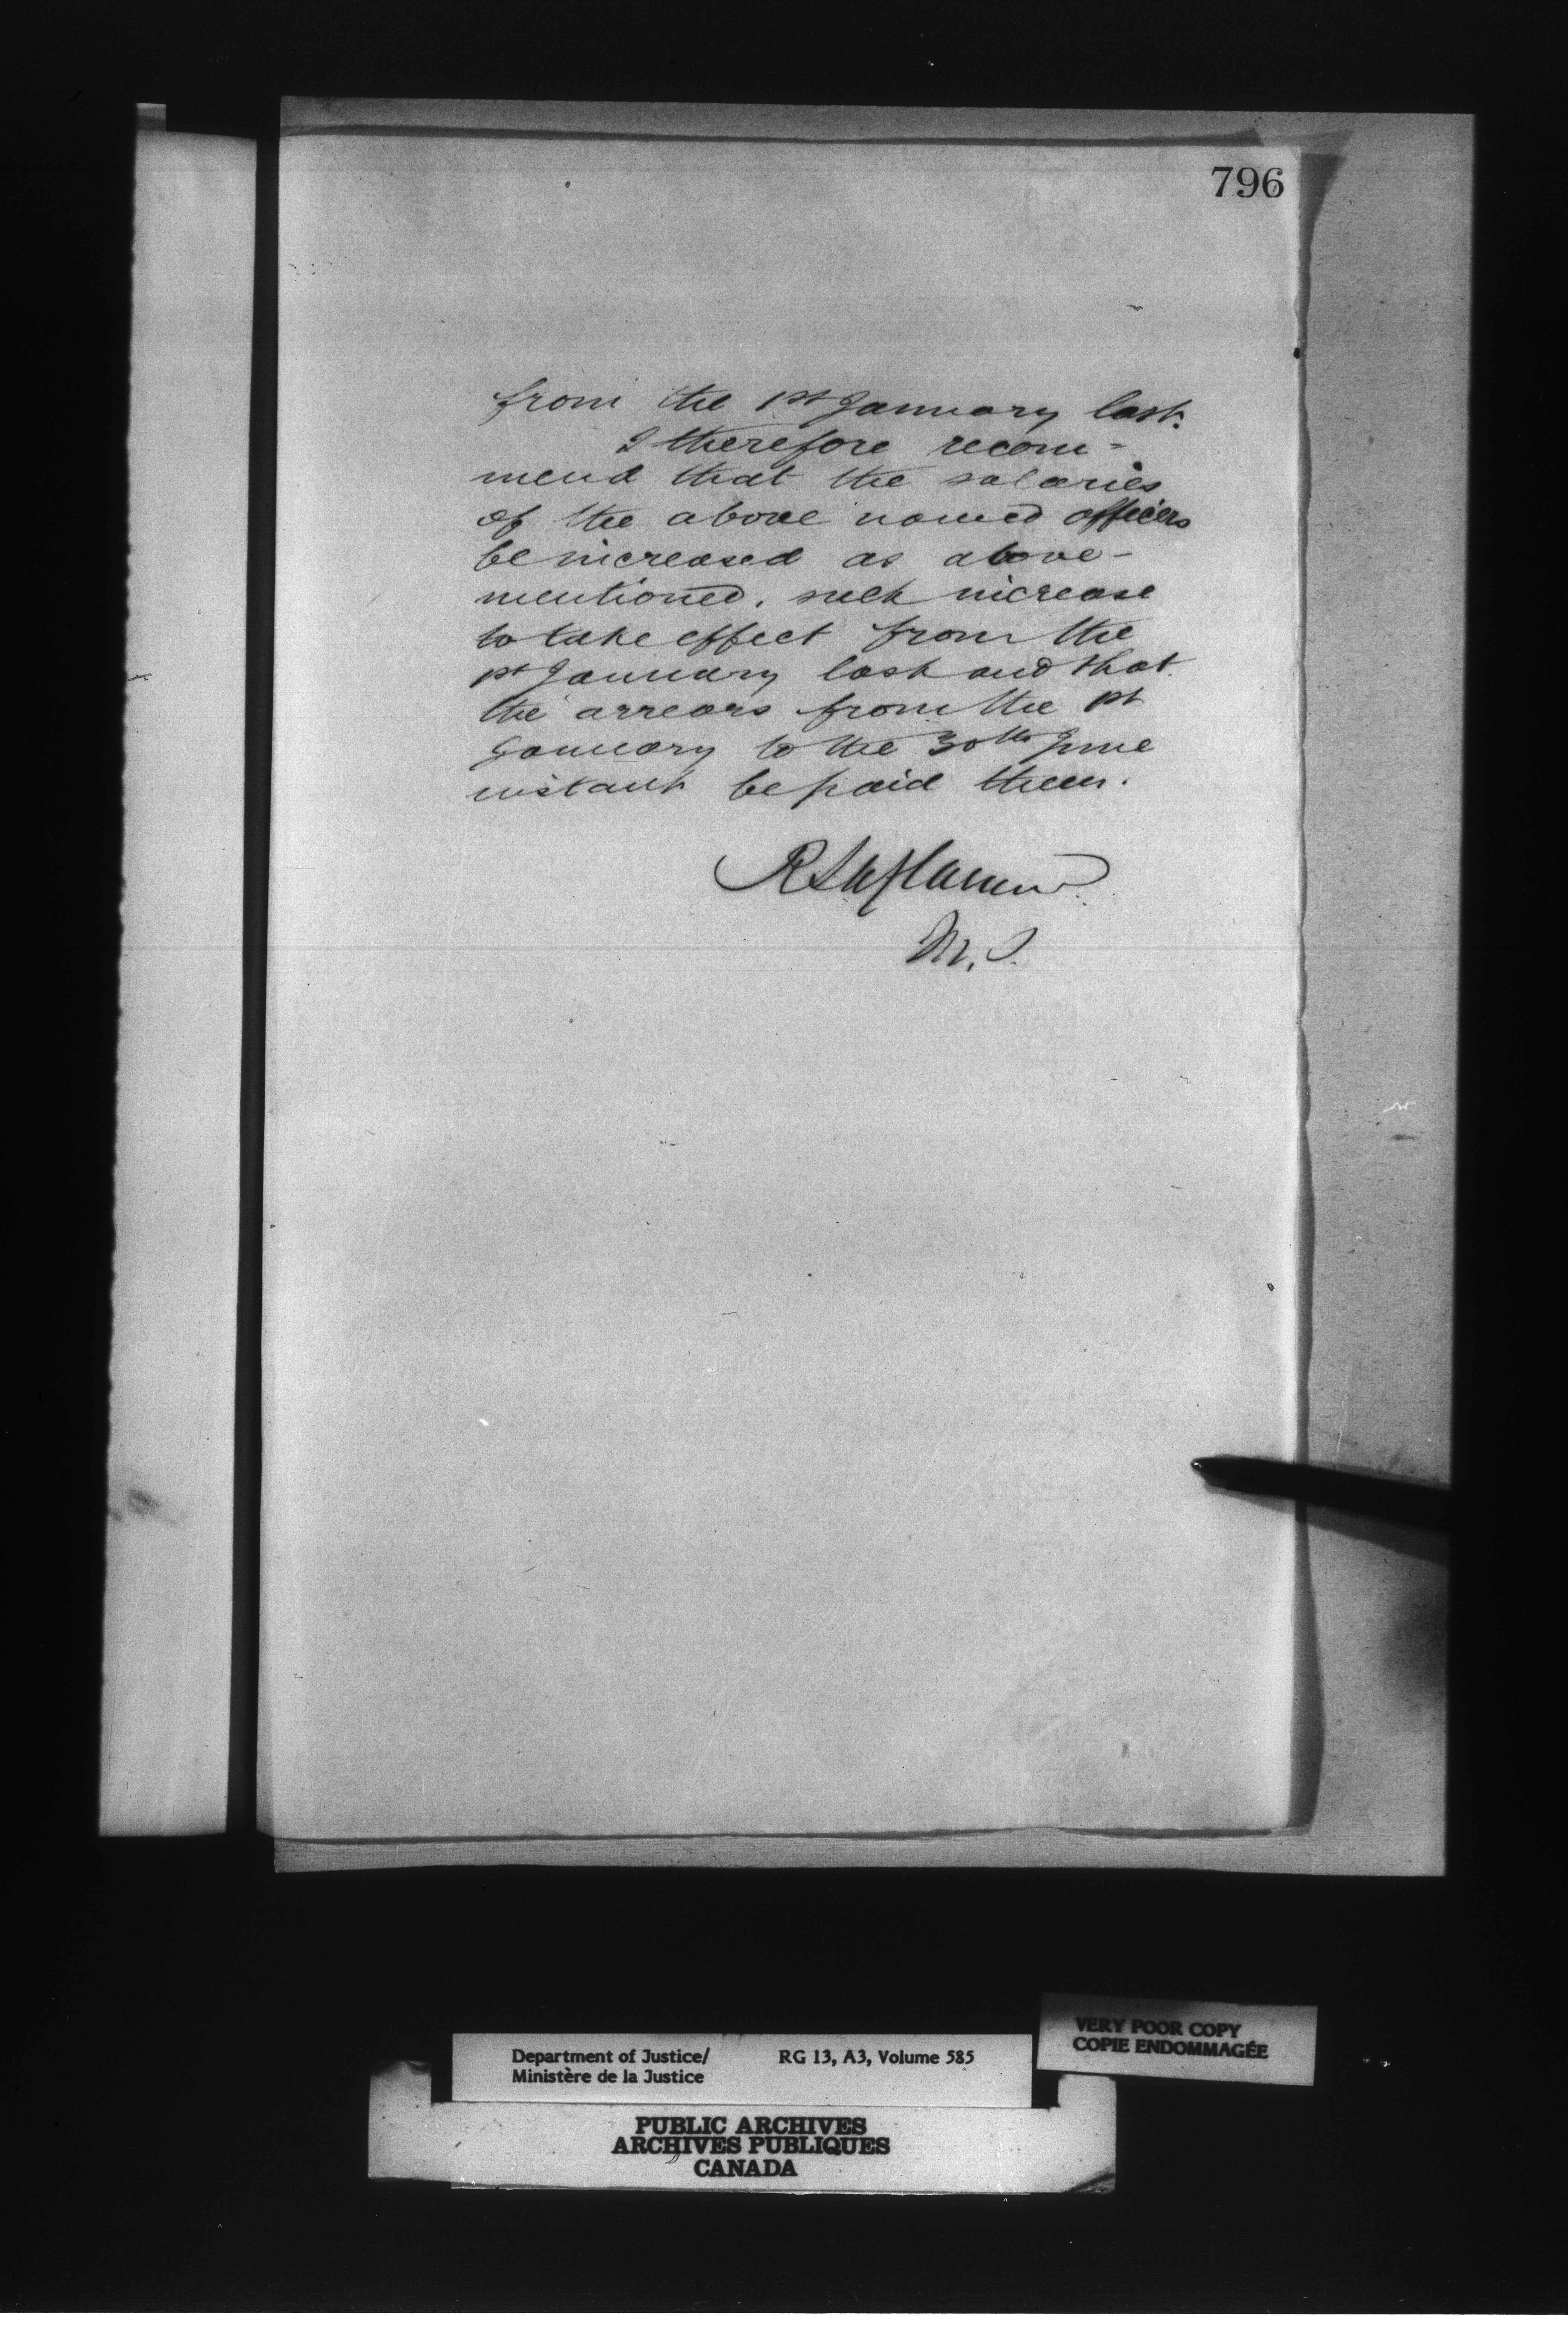 796
from the 1st January last.
I therefore recom=
mend that the salaries
of the above named officers
be increased as above-
mentioned, such increase
to take effect from the
1st January last and that
the arrears from the 1st
January to the 30th June
instant be paid them.
R Laflamme
M.J.
VERY POOR COPY
COPIE ENDOMMAGÉE
Department of Justice/ RG 13, A3, Volume 585
Ministère de la Justice
PUBLIC ARCHIVES
ARCHIVES PUBLIQUES
CANADA